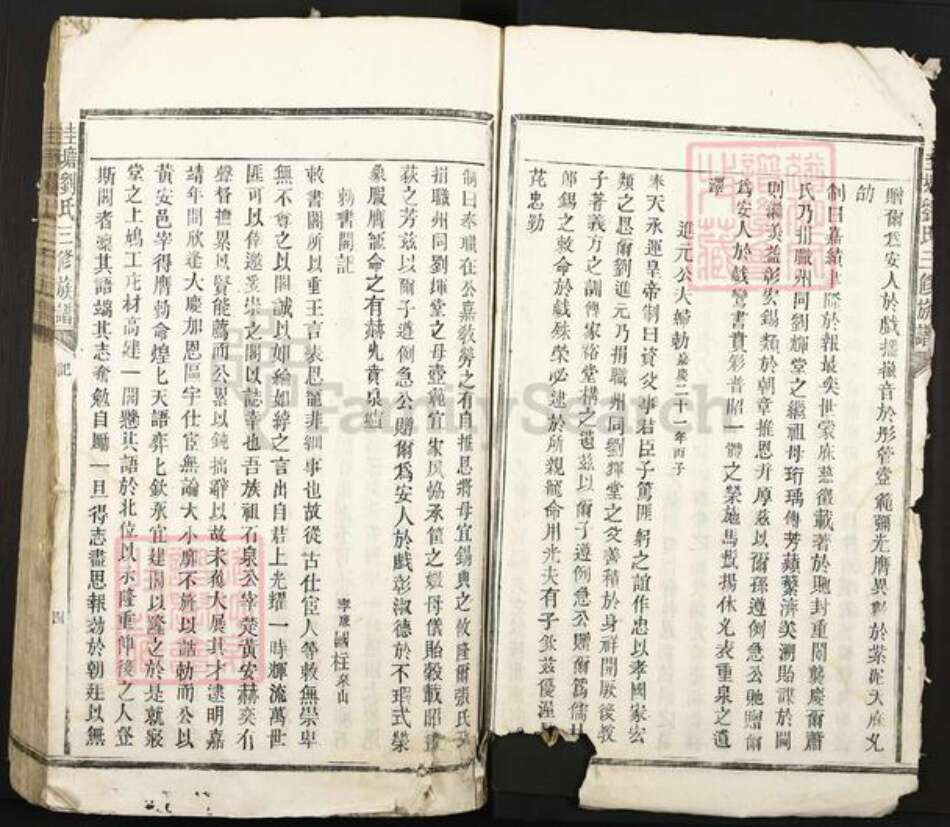 贈爾爲安人於戲播徽音於彤管壼範彌光膺異數於紫泥大庥允
劭
制曰嘉績
於報最奕世蒙庥慈徽載著於貤封重闈襲慶爾蕭
氏乃捐職州同劉輝堂之繼祖母珩瑀傳芳蘋蘩濟美溯貽謀於閫
則彌美益彰宏錫類於朝章推恩升厚茲以爾孫遵例急公貤贈爾
爲安人於戲鸞書賁彩普昭一體之榮施馬鬣揚休光表重泉之遺
澤
進元公夫婦勅 嘉慶二十一年丙子
奉天承運皇帝制曰資父事君臣子篤匪躬之誼作忠以孝國家宏
類之恩爾劉進元乃捐職州同劉輝堂之父善積於身祥開厥後教
子著義方之訓傳家裕堂構之遺茲以爾子遵例急公贈爾爲儒林
郎錫之敕命於戲殊榮必逮於所親寵命用光夫有子欽茲優渥
芘忠勤
制曰奉職在公嘉敎勞之有自推恩將母宜錫典之攸隆爾張氏乃
捐職州同劉輝堂之母壼範宜家夙恊承筐之媺母儀貽穀載昭畫
荻之芳茲以爾子遵例急公贈爾爲安人於戲彰淑德於不瑕式榮
象服膺寵命之有赫光賁泉壚
勅書閣記
李應國柱來山
敕書閣所以重王言表恩寵非細事也故從古仕宦人等敕無崇卑
無不尊之以閣誠以如綸如綍之言出自君上光耀一時輝流萬世
匪可以倖邀爰崇之閣以誌幸也吾族祖石泉公宰楚黃安赫奕有
聲督撫累以賢能薦而公累以鈍拙辭以故未獲大展其才逮明嘉
靖年間欣逢大慶加恩區宇仕宦無論大小靡不旌以誥勅而公以
黃安邑宰得膺勅命煌上天語弈上欽承宜建閣以隆之於是就寢
堂之上鳩工庀材高建一閣懸其語於北位以示隆重俾後之人登
斯閣者凜其語端其志奮勉自勵一旦得志盡思報效於朝廷以無
桂塘劉氏三修族譜
記
四
FamilySearch